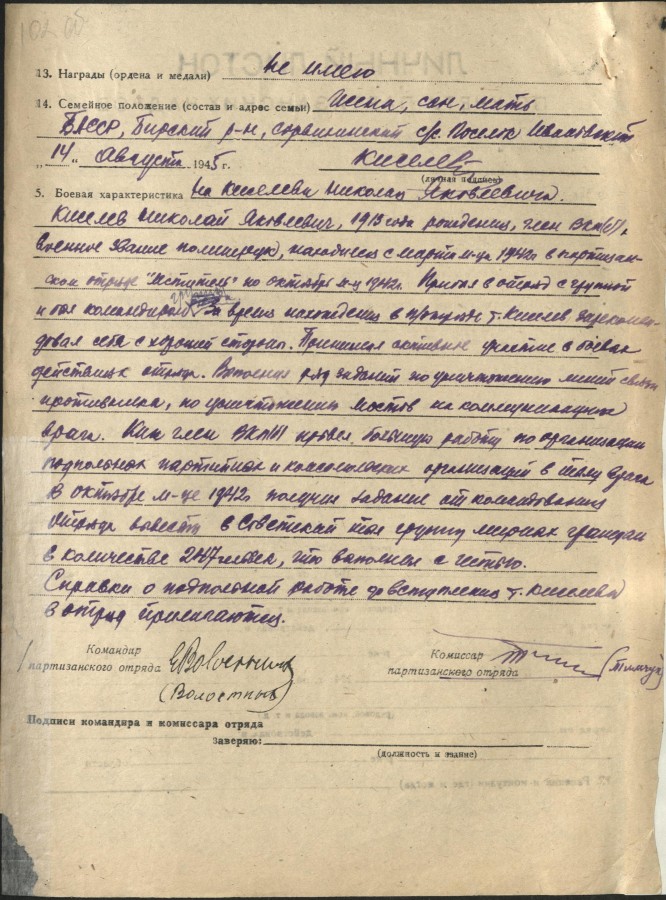 102 об
13. Награды (ордена и медали) Не имею
14. Семейное положение (состав и адрес семьи) Жена, сын, мать
БАССР, Бирский р-н, с/с. Поселок Ивановский
„14" Августа 1945 г. Киселев
(личная подпись)
5. Боевая характеристика На Киселева Николая Яковлевича.
Киселев Николай Яковлевич, 1913 года рождения, член ВКП(б),
военное звание политрук, находился с марта м-ца 1942г в партизан-
ском отряде "Мститель" по октябрь м-ц 1942г. Пришел в отряд с группой
группы
и был командиром За время нахождения в п/отряде т. Киселев зарекомен-
довал себя с хорошей стороны. Принимал активное участие в боевых
действиях отряда. Выполнял ряд заданий по уничтожению линий связи
противника, по уничтожению мостов на коммуникациях
врага. Как член ВКП(б) провел большую работу по организации
подпольных партийных и комсомольских организаций в тылу врага
В октябре м-це 1942г получил задание от командования
отряда вывести в Советский тыл группу мирных граждан
в количестве 247 человек, что выполнил с честью.
Справки о подпольной работе до вступления т. Киселева
в отряд прилагаются.
Командир
партизанского отряда
(Волостных)
Комиссар
партизанского отряда (Тимчук)
Подписи командира и комиссара отряда
Заверяю:
(должность и звание)